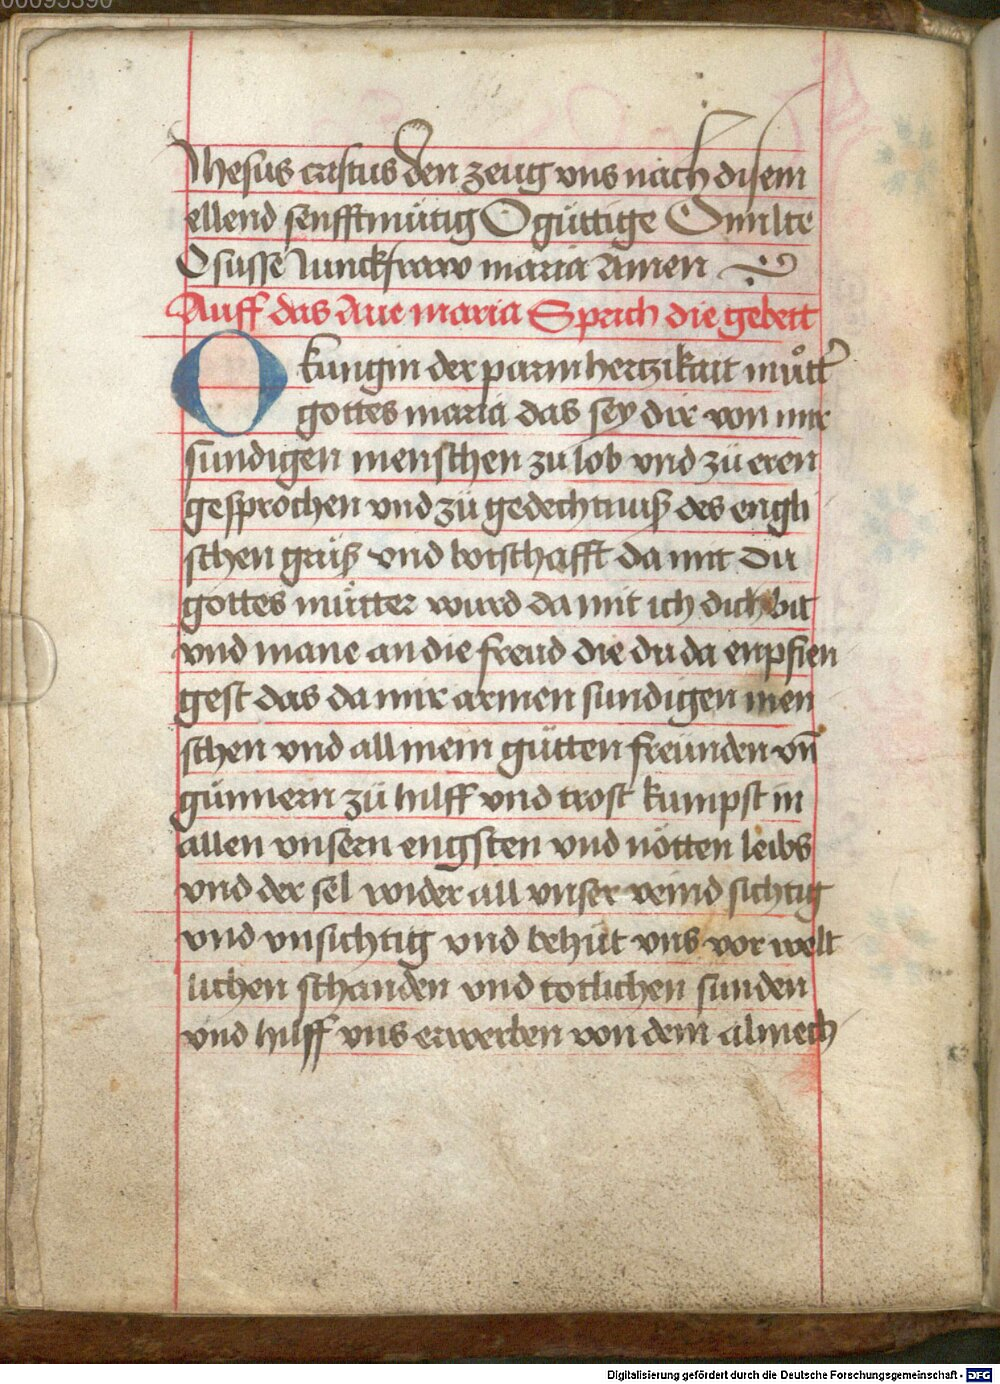 00095390
Jhesus cristus den zeug vns nach disem
ellend senfftmütig O güttige O milte
O süsse Junckfraw maria Amen
Auff das Aue maria Sprich die gebett
O kungin der parmhertzikait můtter
gottes maria das sey dir von mir
sundigen menschen zu lob vnd zü eren
gesprochen vnd zü gedechtnuß des engli
schen grüß vnd botschafft da mit du
gottes mütter wurd da mit ich dich bit
vnd mane an die freud die du da enpfien
gest das da mir armen sundigen men
schen vnd all mein gütten freünden vn̄
günnern zü hilff vnd trost kumpst in
allen vnsern engsten vnd nötten leibs
vnd der sel wider all vnser veind sichtig
vnd vnsichtig vnd behüt vns vor welt
lichen schanden vnd totlichen sunden
vnd hilff vns erwerben von dem almech
Digitalisierung gefördert durch die Deutsche Forschungsgemeinschaft - DFG